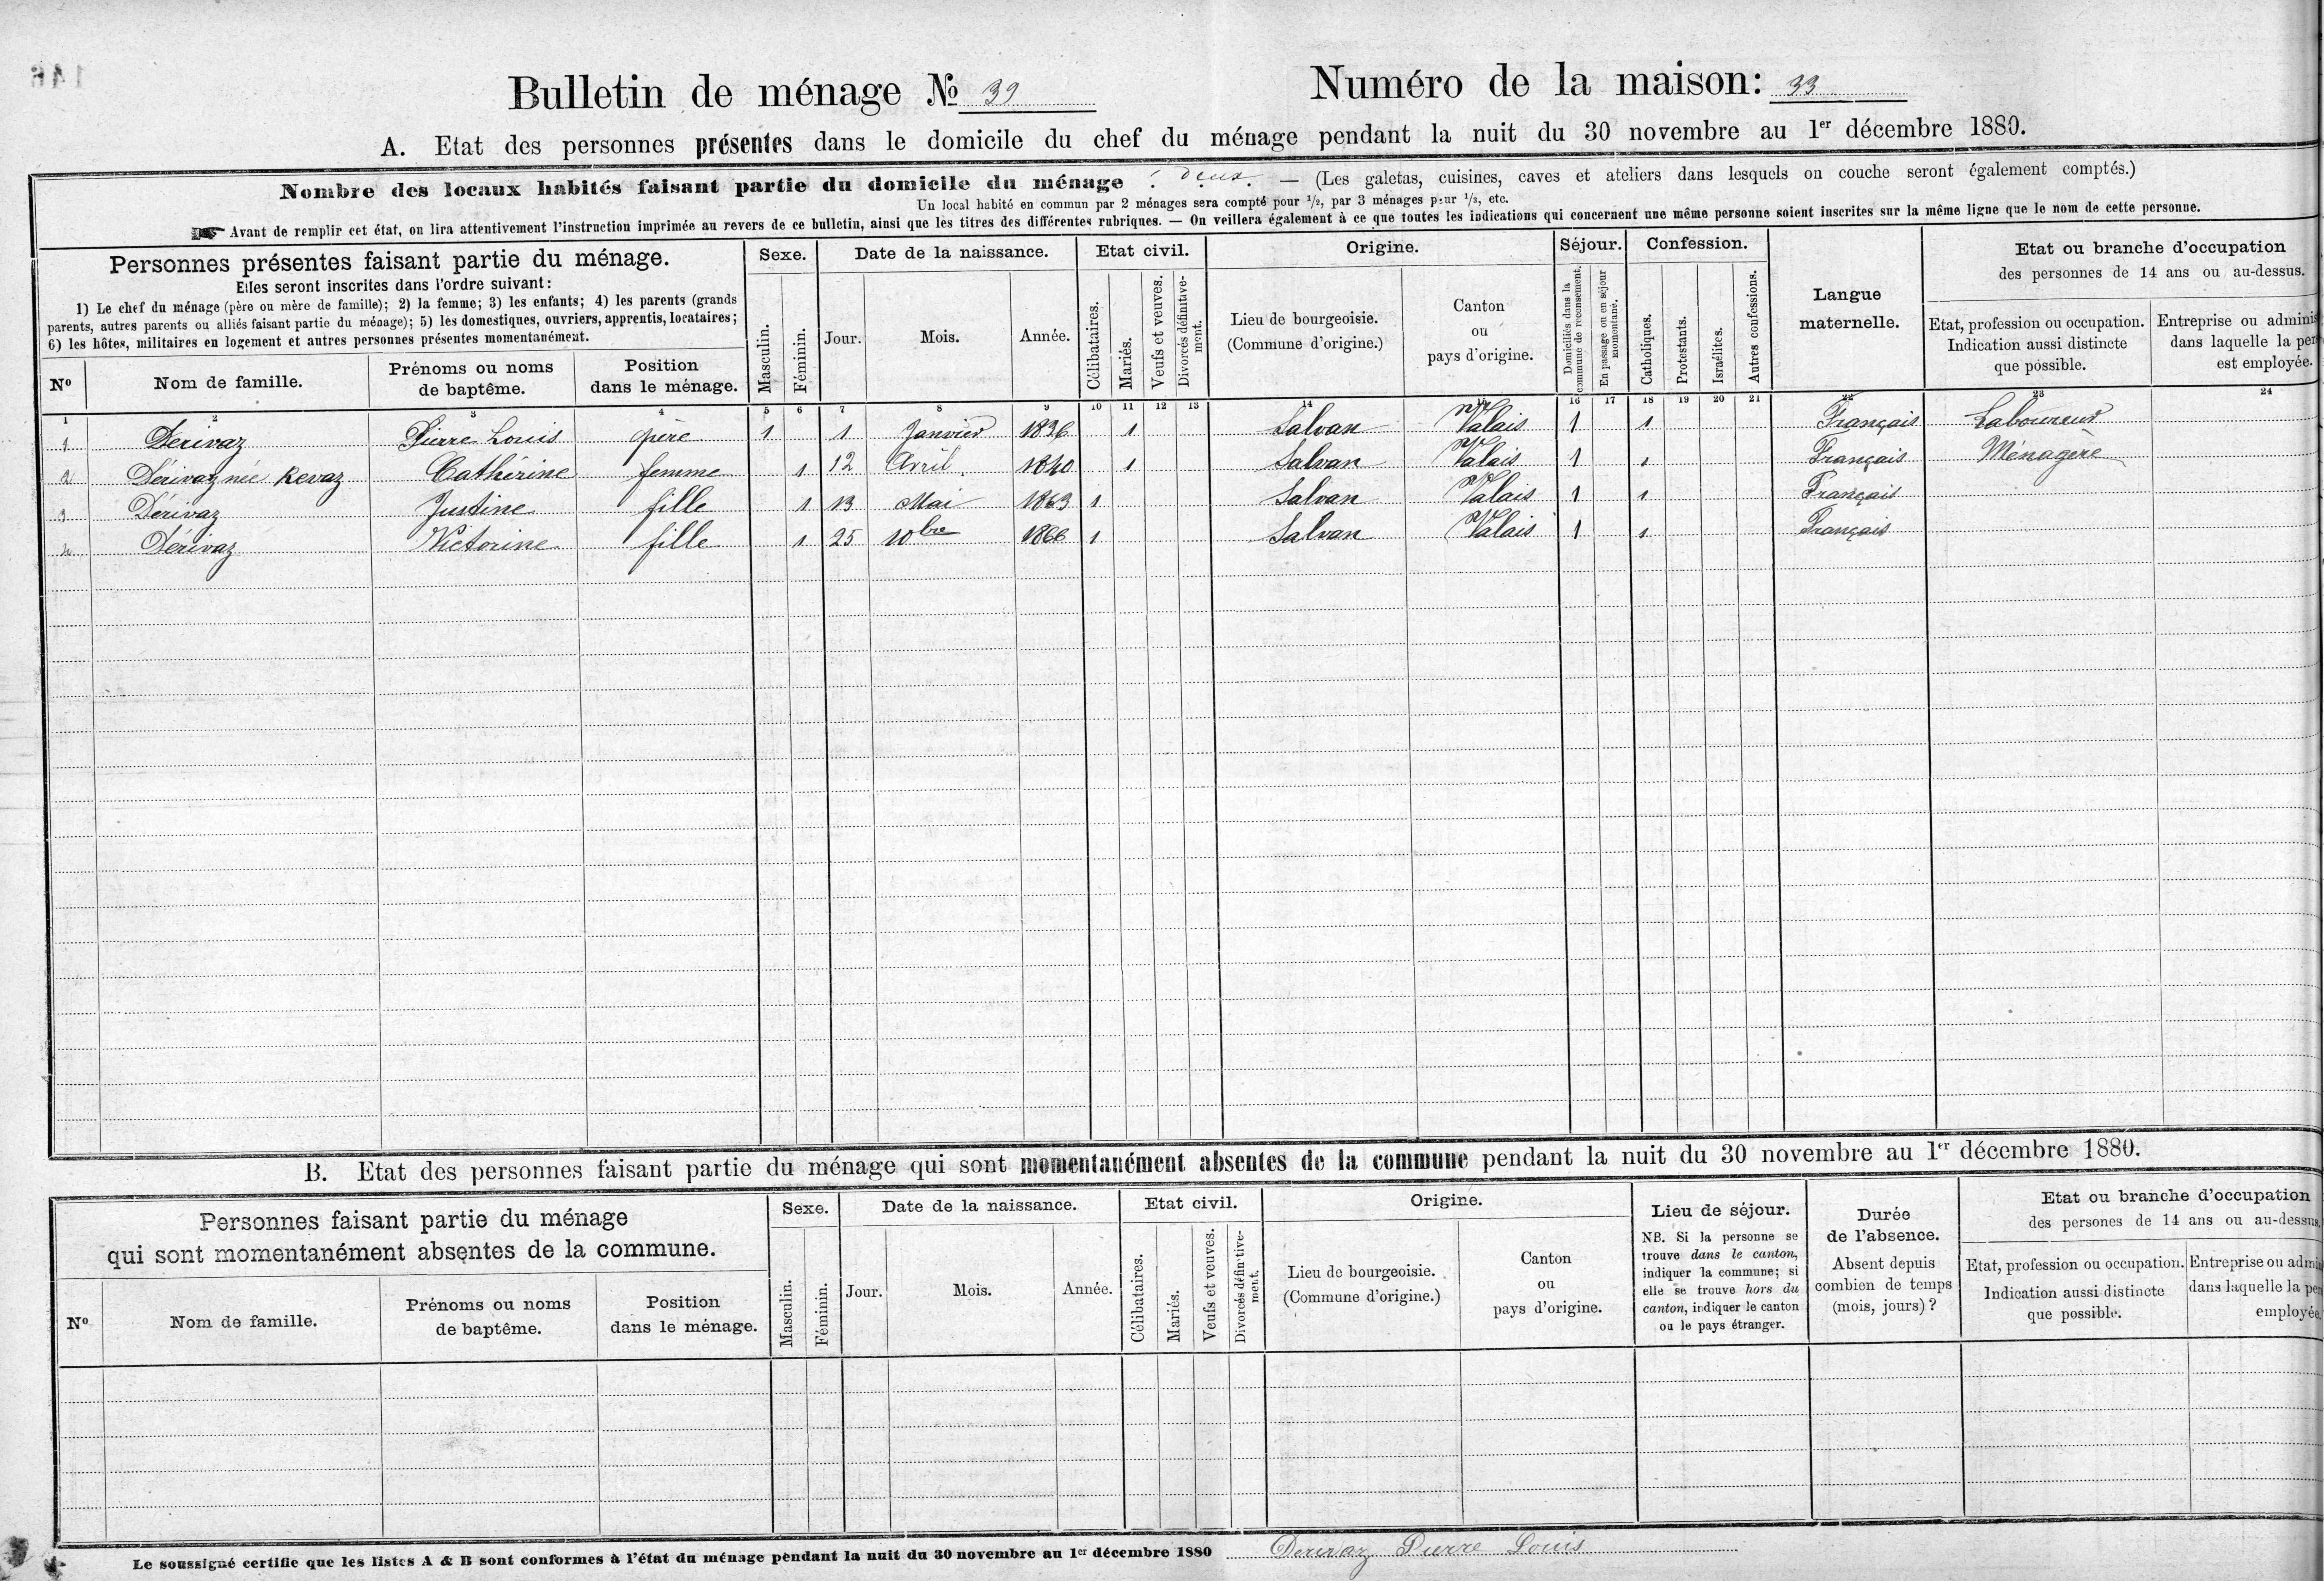 146
Bulletin de ménage № 39 Numéro de la maison: 33
A. Etat des personnes présentes dans le domicile du chef du ménage pendant la nuit du 30 novembre au 1er décembre 1880.
Nombre des locaux habités faisant partie du domicile du ménage : deux. — (Les galetas, cuisines, caves et ateliers dans lesquels on couche seront également comptés.)
Un local habité en commun par 2 ménages sera compté pour 1/2, par 3 ménages pour 1/3, etc.
Avant de remplir cet état, on lira attentivement l'instruction imprimée au revers de ce bulletin, ainsi que les titres des différentes rubriques. — On veillera également à ce que toutes les indications qui concernent une même personne soient inscrites sur la même ligne que le nom de cette personne.
Personnes présentes faisant partie du ménage.
Elles seront inscrites dans l'ordre suivant:
1) Le chef du ménage (père ou mère de famille); 2) la femme; 3) les enfants; 4) les parents (grands
parents, autres parents ou alliés faisant partie du ménage); 5) les domestiques, ouvriers, apprentis, locataires;
6) les hôtes, militaires en logement et autres personnes présentes momentanément.
Nº Nom de famille. Prénoms ou noms de baptême. Position dans le ménage.
Sexe. Masculin. Féminin.
Date de la naissance. Jour. Mois. Année.
Etat civil. Célibataires. Mariés. Veufs et veuves. Divorcés définitivement.
Origine. Lieu de bourgeoisie. (Commune d'origine.) Canton ou pays d'origine.
Séjour. Domiciliés dans la commune de recensement. En passage ou en séjour momentané.
Confession. Catholiques. Protestants. Israélites. Autres confessions.
Langue maternelle.
Etat ou branche d'occupation
des personnes de 14 ans ou au-dessus.
Etat, profession ou occupation. Indication aussi distincte que possible.
Entreprise ou adminis
dans laquelle la per
est employée.
1 2 3 4 5 6 7 8 9 10 11 12 13 14 15 16 17 18 19 20 21 22 23 24
1 Dérivaz Pierre Louis père 1 1 Janvier 1836 1 Salvan Valais 1 1 Français Laboureur
2 Dérivaz née Revaz Cathérine femme 1 12 Avril 1840 1 Salvan Valais 1 1 Français Ménagère
3 Dérivaz Justine fille 1 13 Mai 1863 1 Salvan Valais 1 1 Français
4 Dérivaz Victorine fille 1 25 10bre 1866 1 Salvan Valais 1 1 Français
B. Etat des personnes faisant partie du ménage qui sont momentanément absentes de la commune pendant la nuit du 30 novembre au 1er décembre 1880.
Personnes faisant partie du ménage
qui sont momentanément absentes de la commune.
Nº Nom de famille. Prénoms ou noms de baptême. Position dans le ménage.
Sexe. Masculin. Féminin.
Date de la naissance. Jour. Mois. Année.
Etat civil. Célibataires. Mariés. Veufs et veuves. Divorcés définitivement.
Origine. Lieu de bourgeoisie. (Commune d'origine.) Canton ou pays d'origine.
Lieu de séjour.
NB. Si la personne se
trouve dans le canton,
indiquer la commune; si
elle se trouve hors du
canton, indiquer le canton
ou le pays étranger.
Durée
de l'absence.
Absent depuis
combien de temps
(mois, jours)?
Etat ou branche d'occupation
des persones de 14 ans ou au-dessus.
Etat, profession ou occupation. Indication aussi distincte que possible.
Entreprise ou admi
dans laquelle la pe
employée.
Le soussigné certifie que les listes A & B sont conformes à l'état du ménage pendant la nuit du 30 novembre au 1er décembre 1880 Derivaz Pierre Louis